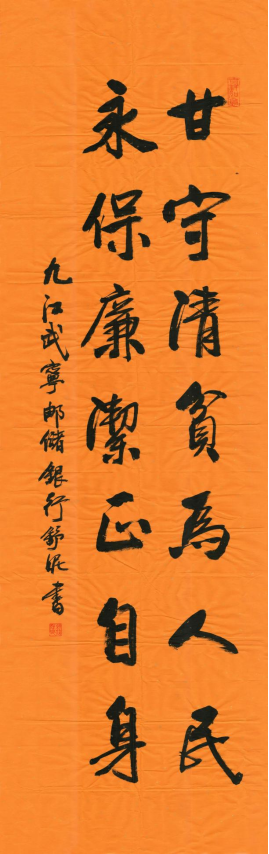 甘守清貧為人民
永保廉潔正自身
九江武寧邮儲銀行舒泥書